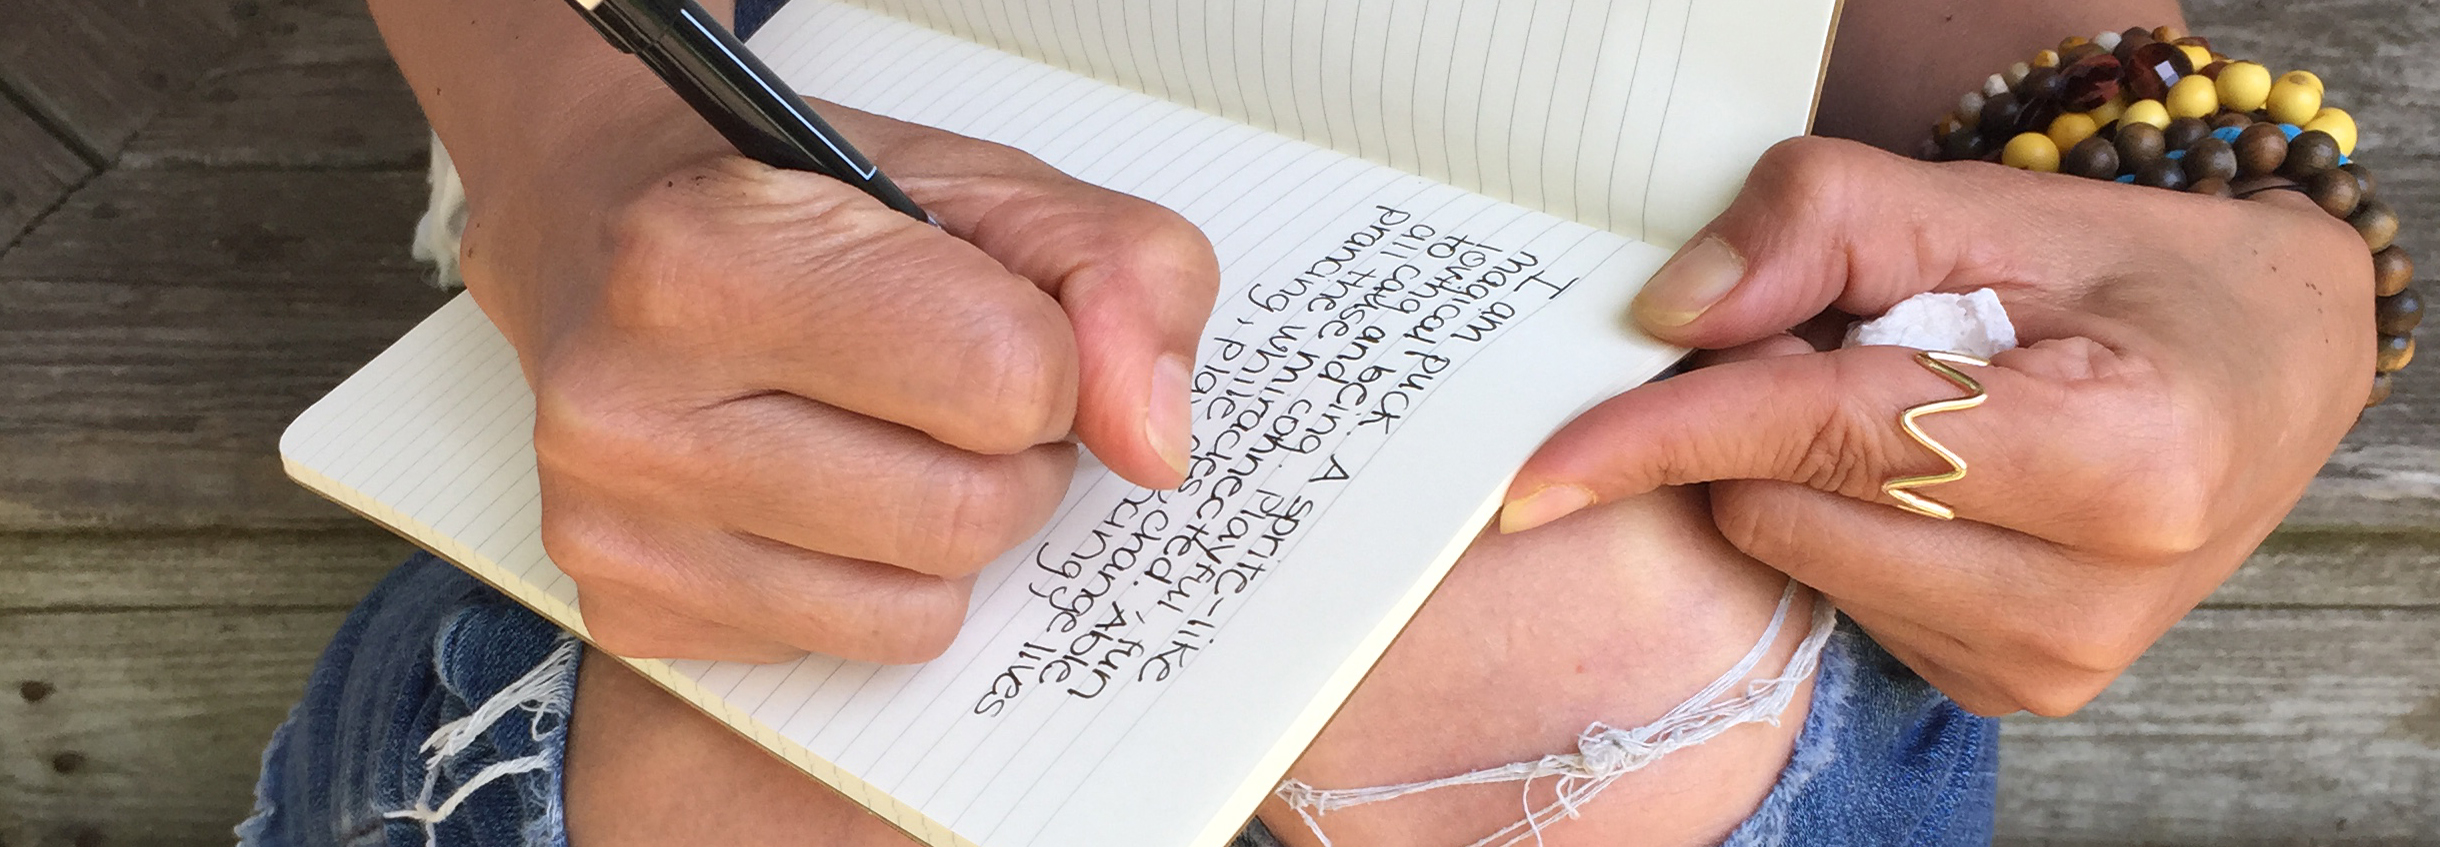 I am Puck. A sprite-like
magical being. Playful, fun
loving and connected. Able
to cause miracles, change lives
all the while
prancing,